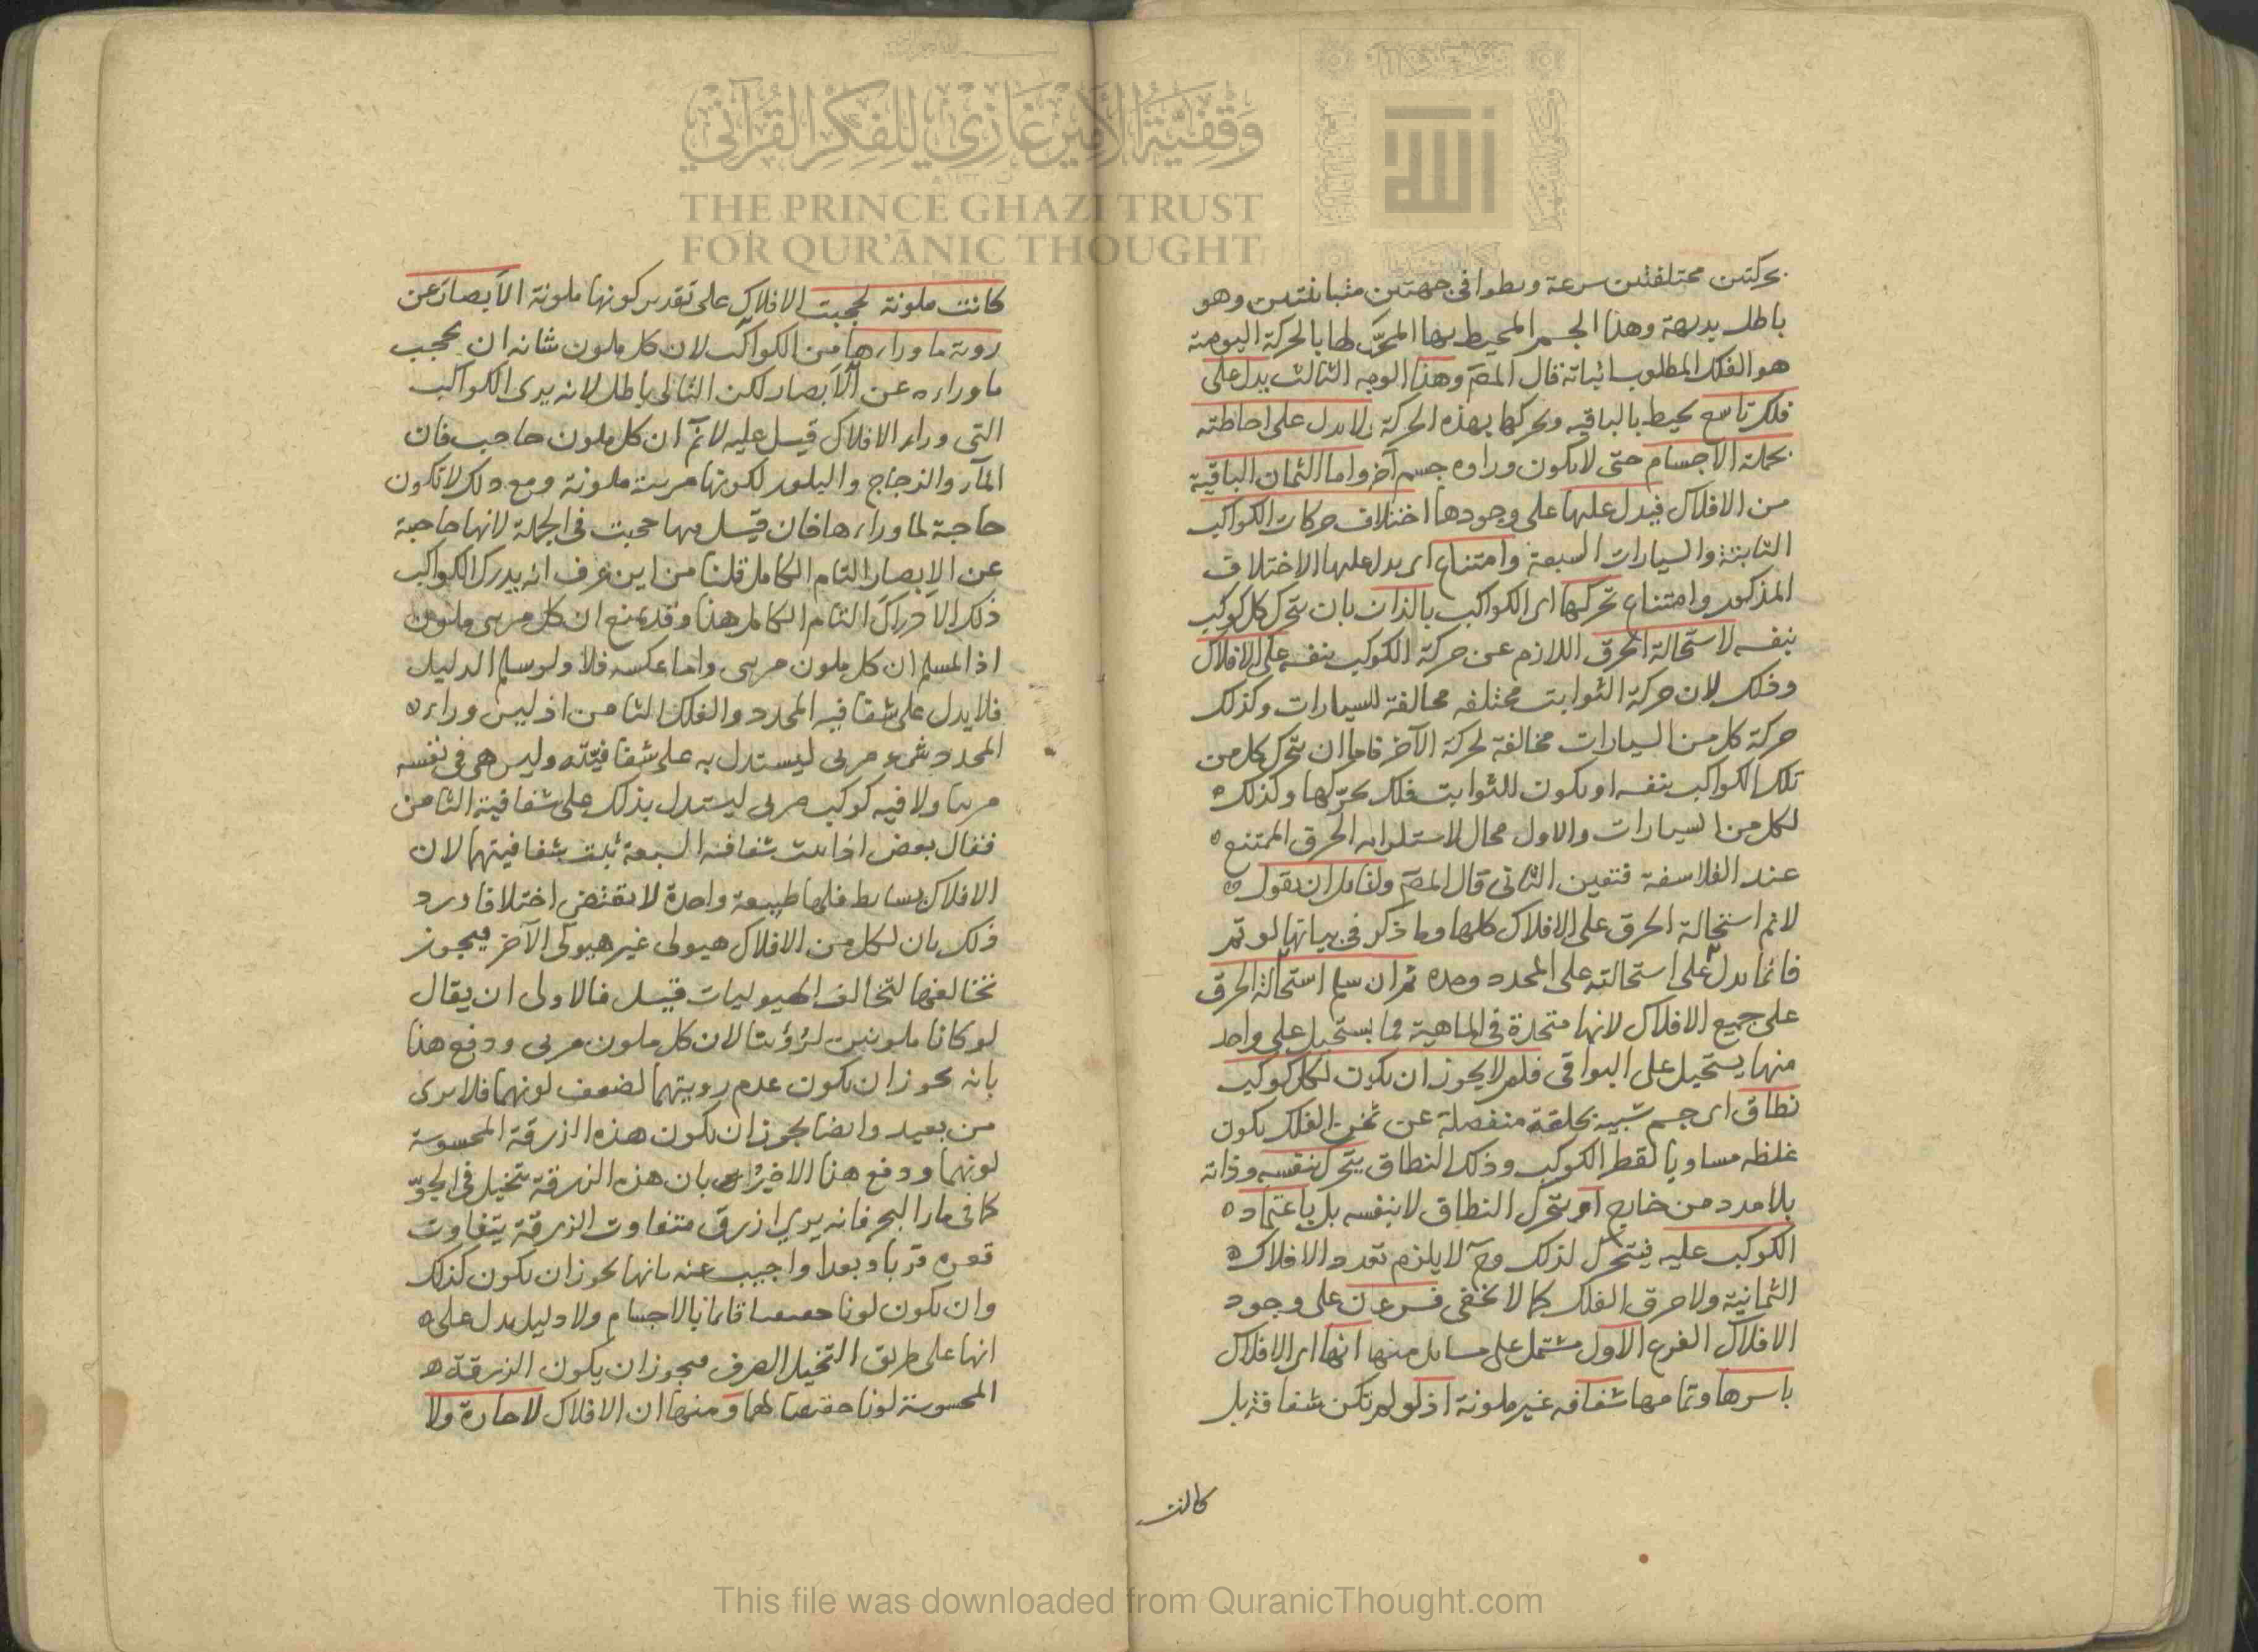 بحركتين مختلفتين سرعة وبطوا فى جهتين متباينتين وهو
باطل بديهة وهذا الجسم المحيط بها المحرّك لها بالحركة اليومية
هو الفلك المطلوب اثباته قال المصـ وهذا الوجه الثالث يدل على
فلك تاسع يحيط بالباقيه ويحركها بهذه الحركة ولا يدل على احاطته
بجملة الاجسام حتى لا يكون وراوه جسم آخر واما الثمان الباقية
من الافلاك فيدل عليها على وجودها اختلاف حركات الكواكب
الثابتة والسيارات السبعة وامتناع اى يدل عليها الاختلاف
المذكور وامتناع تحركها اى الكواكب بالذات بان يتحرك كل كوكب
بنفسه لاستحالة الخرق اللازم عن حركة الكوكب بنفسه على الافلاك
وذلك لان حركة الثوابت مختلفه مخالفة للسيارات وكذلك
حركة كل من السيارات مخالفة لحركة الآخر فاما ان يتحرك كل من
تلك الكواكب بنفسه او يكون للثوابت فلك يحرّكها وكذلك ه
لكل من السيارات والاول محال لاستلزامه الخرق الممتنع ه
عند الفلاسفة فتعين الثانى قال المصـ ولقايل ان يقول ه
لا نم استحالة الخرق على الافلاك كلها وما ذكر فى بيانها لو تم
فانما يدل على استحالته على المحدد وحده ثم ان سلم استحالة الخرق
على جميع الافلاك لانها متحدة فى الماهية فما يستحيل على واحد
منها يستحيل على البواقى فلم لا يجوز ان يكون لكل كوكب
نطاق اى جسم شبيه بحلقة منفصلة عن ثخن الفلك يكون
غلظه مساويا لقطر الكوكب وذلك النطاق يتحرك بنفسه وذاته
بلا مدد من خارج او يتحرك النطاق لا بنفسه بل باعتماد ه
الكوكب عليه فيتحرك لذلك وح لا يلزم تعدد الافلاك ه
الثمانية ولا خرق الفلك كما لا يخفى فرعان على وجود
الافلاك الفرع الاول مشتمل على مسايل منها انها اى الافلاك
باسرها وتمامها شفافه غير ملونة اذ لو لم تكن شفافة بل
كانت
كانت ملونة لحجبت الافلاك على تقدير كونها ملونة الابصار عن
روية ما وراءها من الكواكب لان كل ملون شانه ان يحجب
ما وراءه عن الابصار لكن التالى باطل لانه يرى الكواكب
التى وراء الافلاك قيل عليه لا نم ان كل ملون حاجب فان
الماء والزجاج والبلور لكونها مرىية ملونة ومع ذلك لا تكون
حاجبة لما وراءها فان قيل فيها حجبت فى الجملة لانها حاجبة
عن الابصار التام الكامل قلنا من اين عرف انه يدرك الكواكب
ذلك الادراك التام الكامل هذا وقد يمنع ان كل مرىى ملون
اذ المسلم ان كل ملون مرىى واما عكسه فلا ولو سلم الدليل
فلا يدل على شفافية المحدد والفلك الثامن اذ ليس وراء ه
المحدد شىء مرىى ليستدل به على شفافيّته وليس هى فى نفسه
مرىيا ولا فيه كوكب مرىى ليستدل بذلك على شفافية الثامن
فقال بعض اذا ثبت شفافية السبعة ثبت شفافيتهما لان
الافلاك بسايط فلها طبيعة واحدة لا يقتضى اختلافا ورد
ذلك بان لكل من الافلاك هيولى غير هيولى الآخر فيجوز
تخالفها لتخالف الهيوليات قيل فالاولى ان يقال
لو كانا ملونين لرؤيتا لان كل ملون مرىى ودفع هذا
بانه يجوز ان يكون عدم رويتهما لضعف لونهما فلا يرى
من بعيد وايضا يجوز ان يكون هذه الزرقة المحسوسة
لونهما ودفع هذا الاخير بان هذه الزرقة يتخيل فى الجوّ
كما فى ماء البحر فانه يرى ازرق متفاوت الزرقة بتفاوت
قعره قربا وبعدا واجيب عنه بانها يجوز ان يكون كذلك
وان يكون لونا حقيقيا قائما بالاجسام ولا دليل يدل على ه
انها على طريق التخيل الصرف فيجوز ان يكون الزرقة ه
المحسوسة لونا حقيقيا لهما ومنها ان الافلاك لا حارة ولا
وقفية الأمير غازي للفكر القرآني
THE PRINCE GHAZI TRUST
FOR QUR'ĀNIC THOUGHT
الله
This file was downloaded from QuranicThought.com